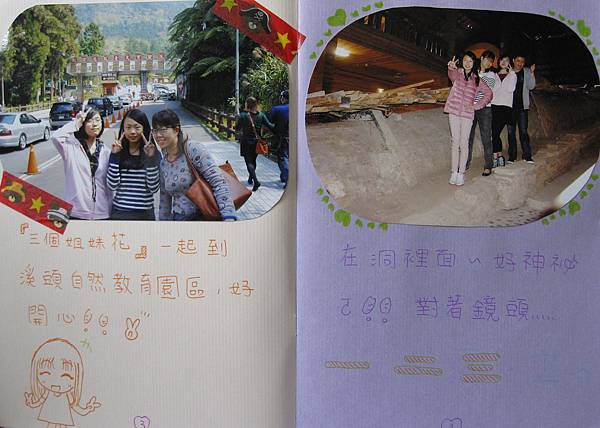 『三個姐妹花』一起到
溪頭自然教育園區,好
開心!!
3
在洞裡面ㄟ好神祕
ㄛ!! 對著鏡頭.....
一 二 三